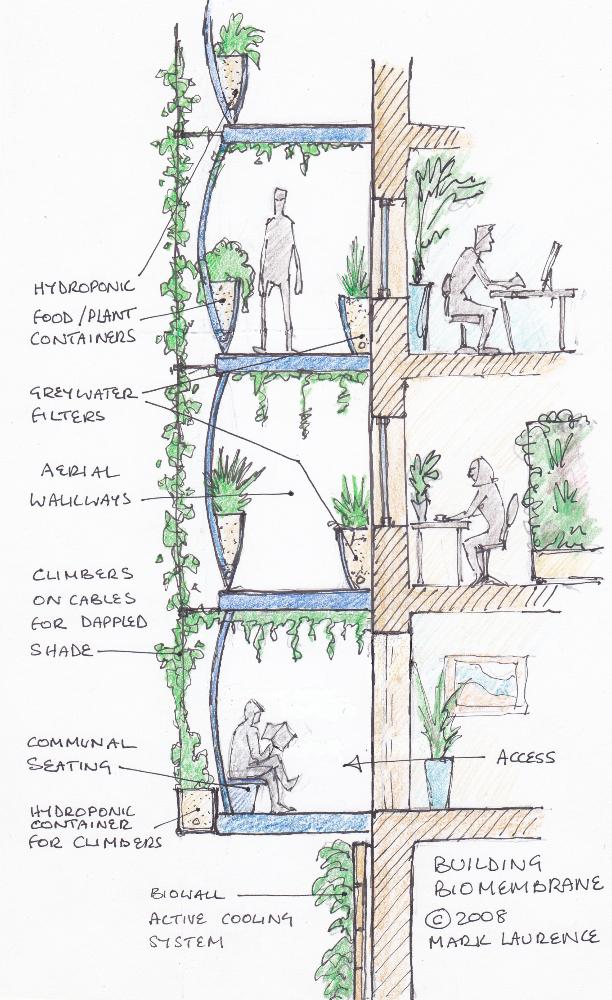 HYDROPONIC
FOOD/PLANT
CONTAINERS
GREYWATER
FILTERS
AERIAL
WALKWAYS
CLIMBERS
ON CABLES
FOR DAPPLED
SHADE
COMMUNAL
SEATING
ACCESS
HYDROPONIC
CONTAINER
FOR CLIMBERS
BUILDING
BIOMEMBRANE
© 2008
MARK LAURENCE
BIOWALL
ACTIVE COOLING
SYSTEM